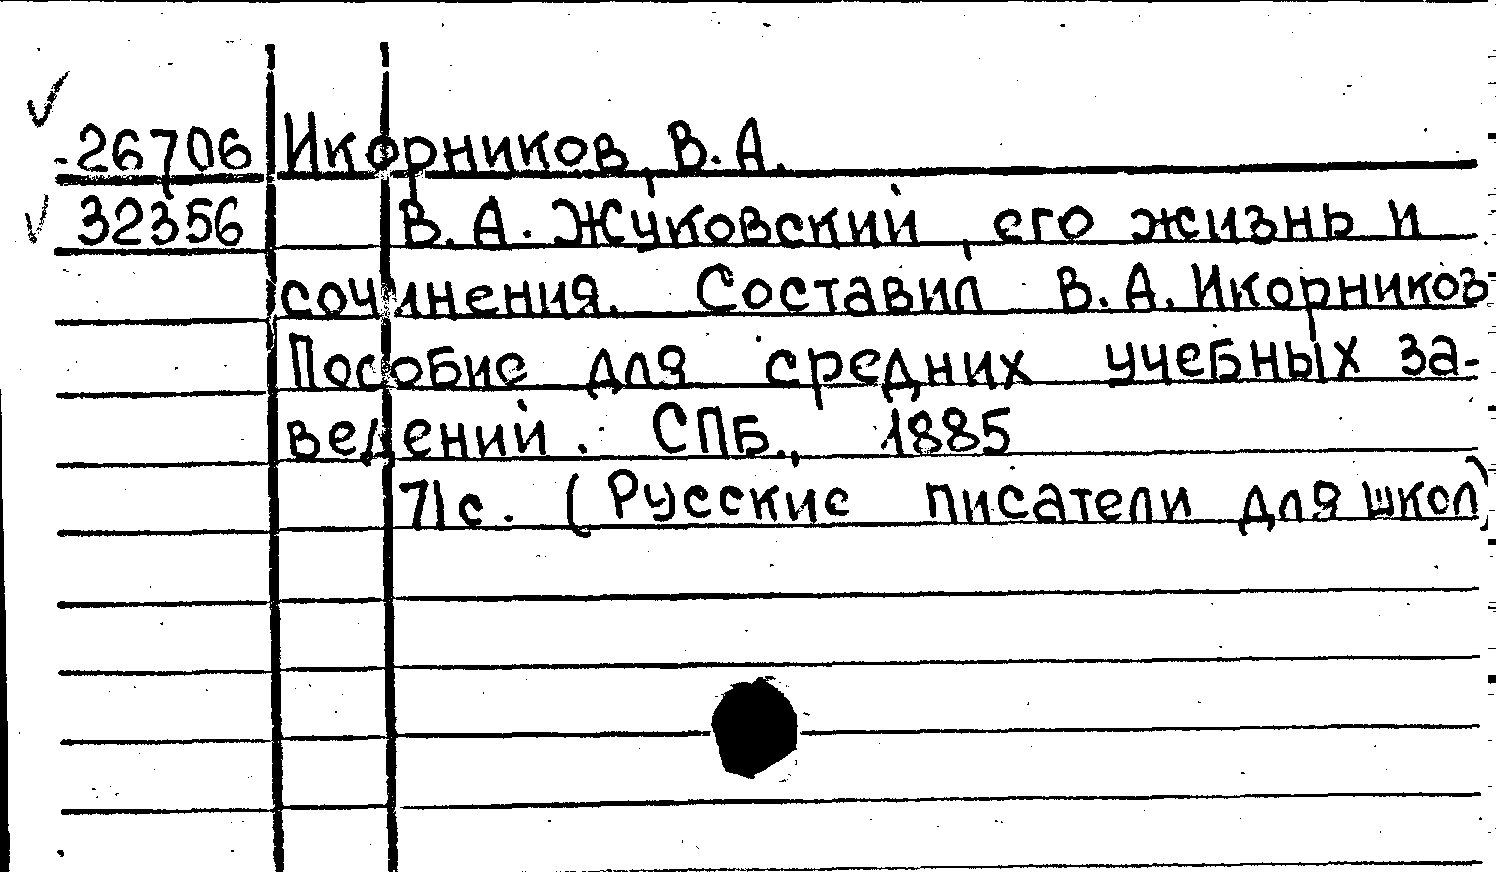 26706 Икорников, В.А.
32356 В.А. Жуковский, его жизнь и
сочинения. Составил В.А. Икорников
Пособие для средних учебных за-
ведений. СПБ., 1885
71с. (Русские писатели для школ)